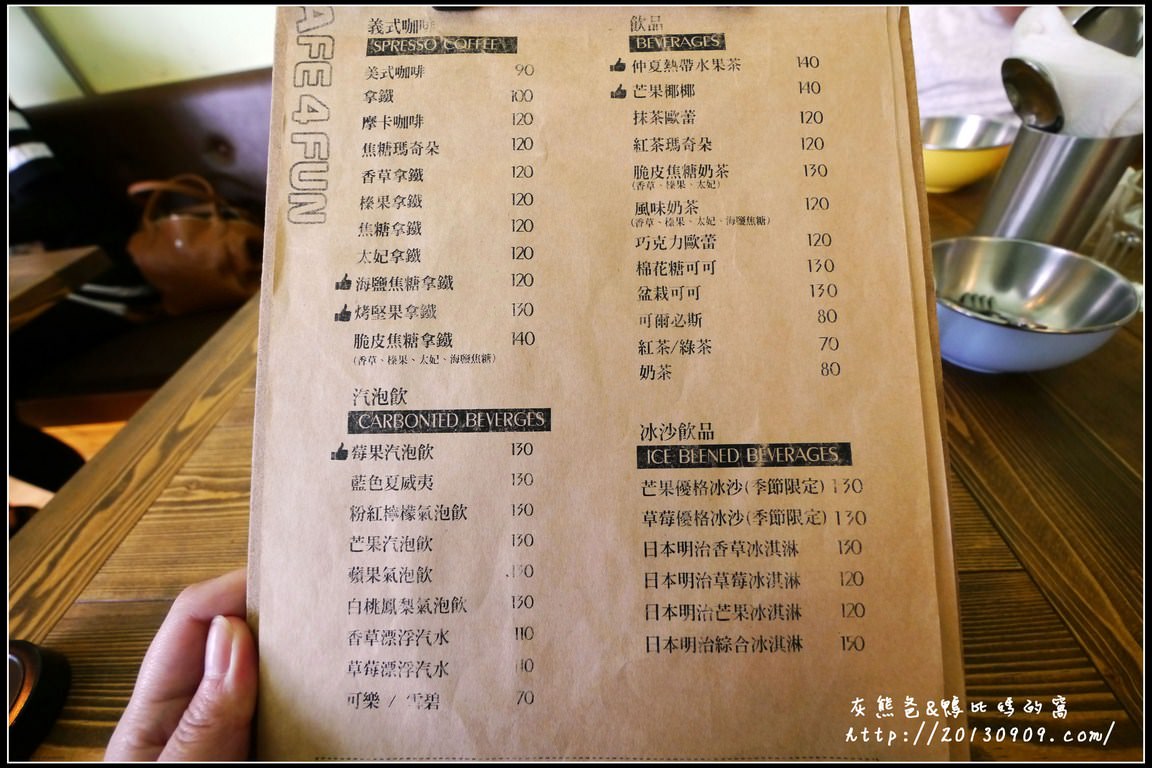 AFE 4 FUN
義式咖啡
SPRESSO COFFEE
美式咖啡 90
拿鐵 100
摩卡咖啡 120
焦糖瑪奇朵 120
香草拿鐵 120
榛果拿鐵 120
焦糖拿鐵 120
太妃拿鐵 120
海鹽焦糖拿鐵 120
烤堅果拿鐵 130
脆皮焦糖拿鐵 140
(香草、榛果、太妃、海鹽焦糖)
汽泡飲
CARBONTED BEVERGES
莓果汽泡飲 130
藍色夏威夷 130
粉紅檸檬氣泡飲 130
芒果汽泡飲 130
蘋果氣泡飲 130
白桃鳳梨氣泡飲 130
香草漂浮汽水 110
草莓漂浮汽水 110
可樂 / 雪碧 70
飲品
BEVERAGES
仲夏熱帶水果茶 140
芒果椰椰 140
抹茶歐蕾 120
紅茶瑪奇朵 120
脆皮焦糖奶茶 130
(香草、榛果、太妃)
風味奶茶 120
(香草、榛果、太妃、海鹽焦糖)
巧克力歐蕾 120
棉花糖可可 130
盆栽可可 130
可爾必斯 80
紅茶/綠茶 70
奶茶 80
冰沙飲品
ICE BLENED BEVERAGES
芒果優格冰沙(季節限定) 130
草莓優格冰沙(季節限定) 130
日本明治香草冰淇淋 130
日本明治草莓冰淇淋 120
日本明治芒果冰淇淋 120
日本明治綜合冰淇淋 150
灰熊爸&鴨比媽的窩
http://20130909.com/